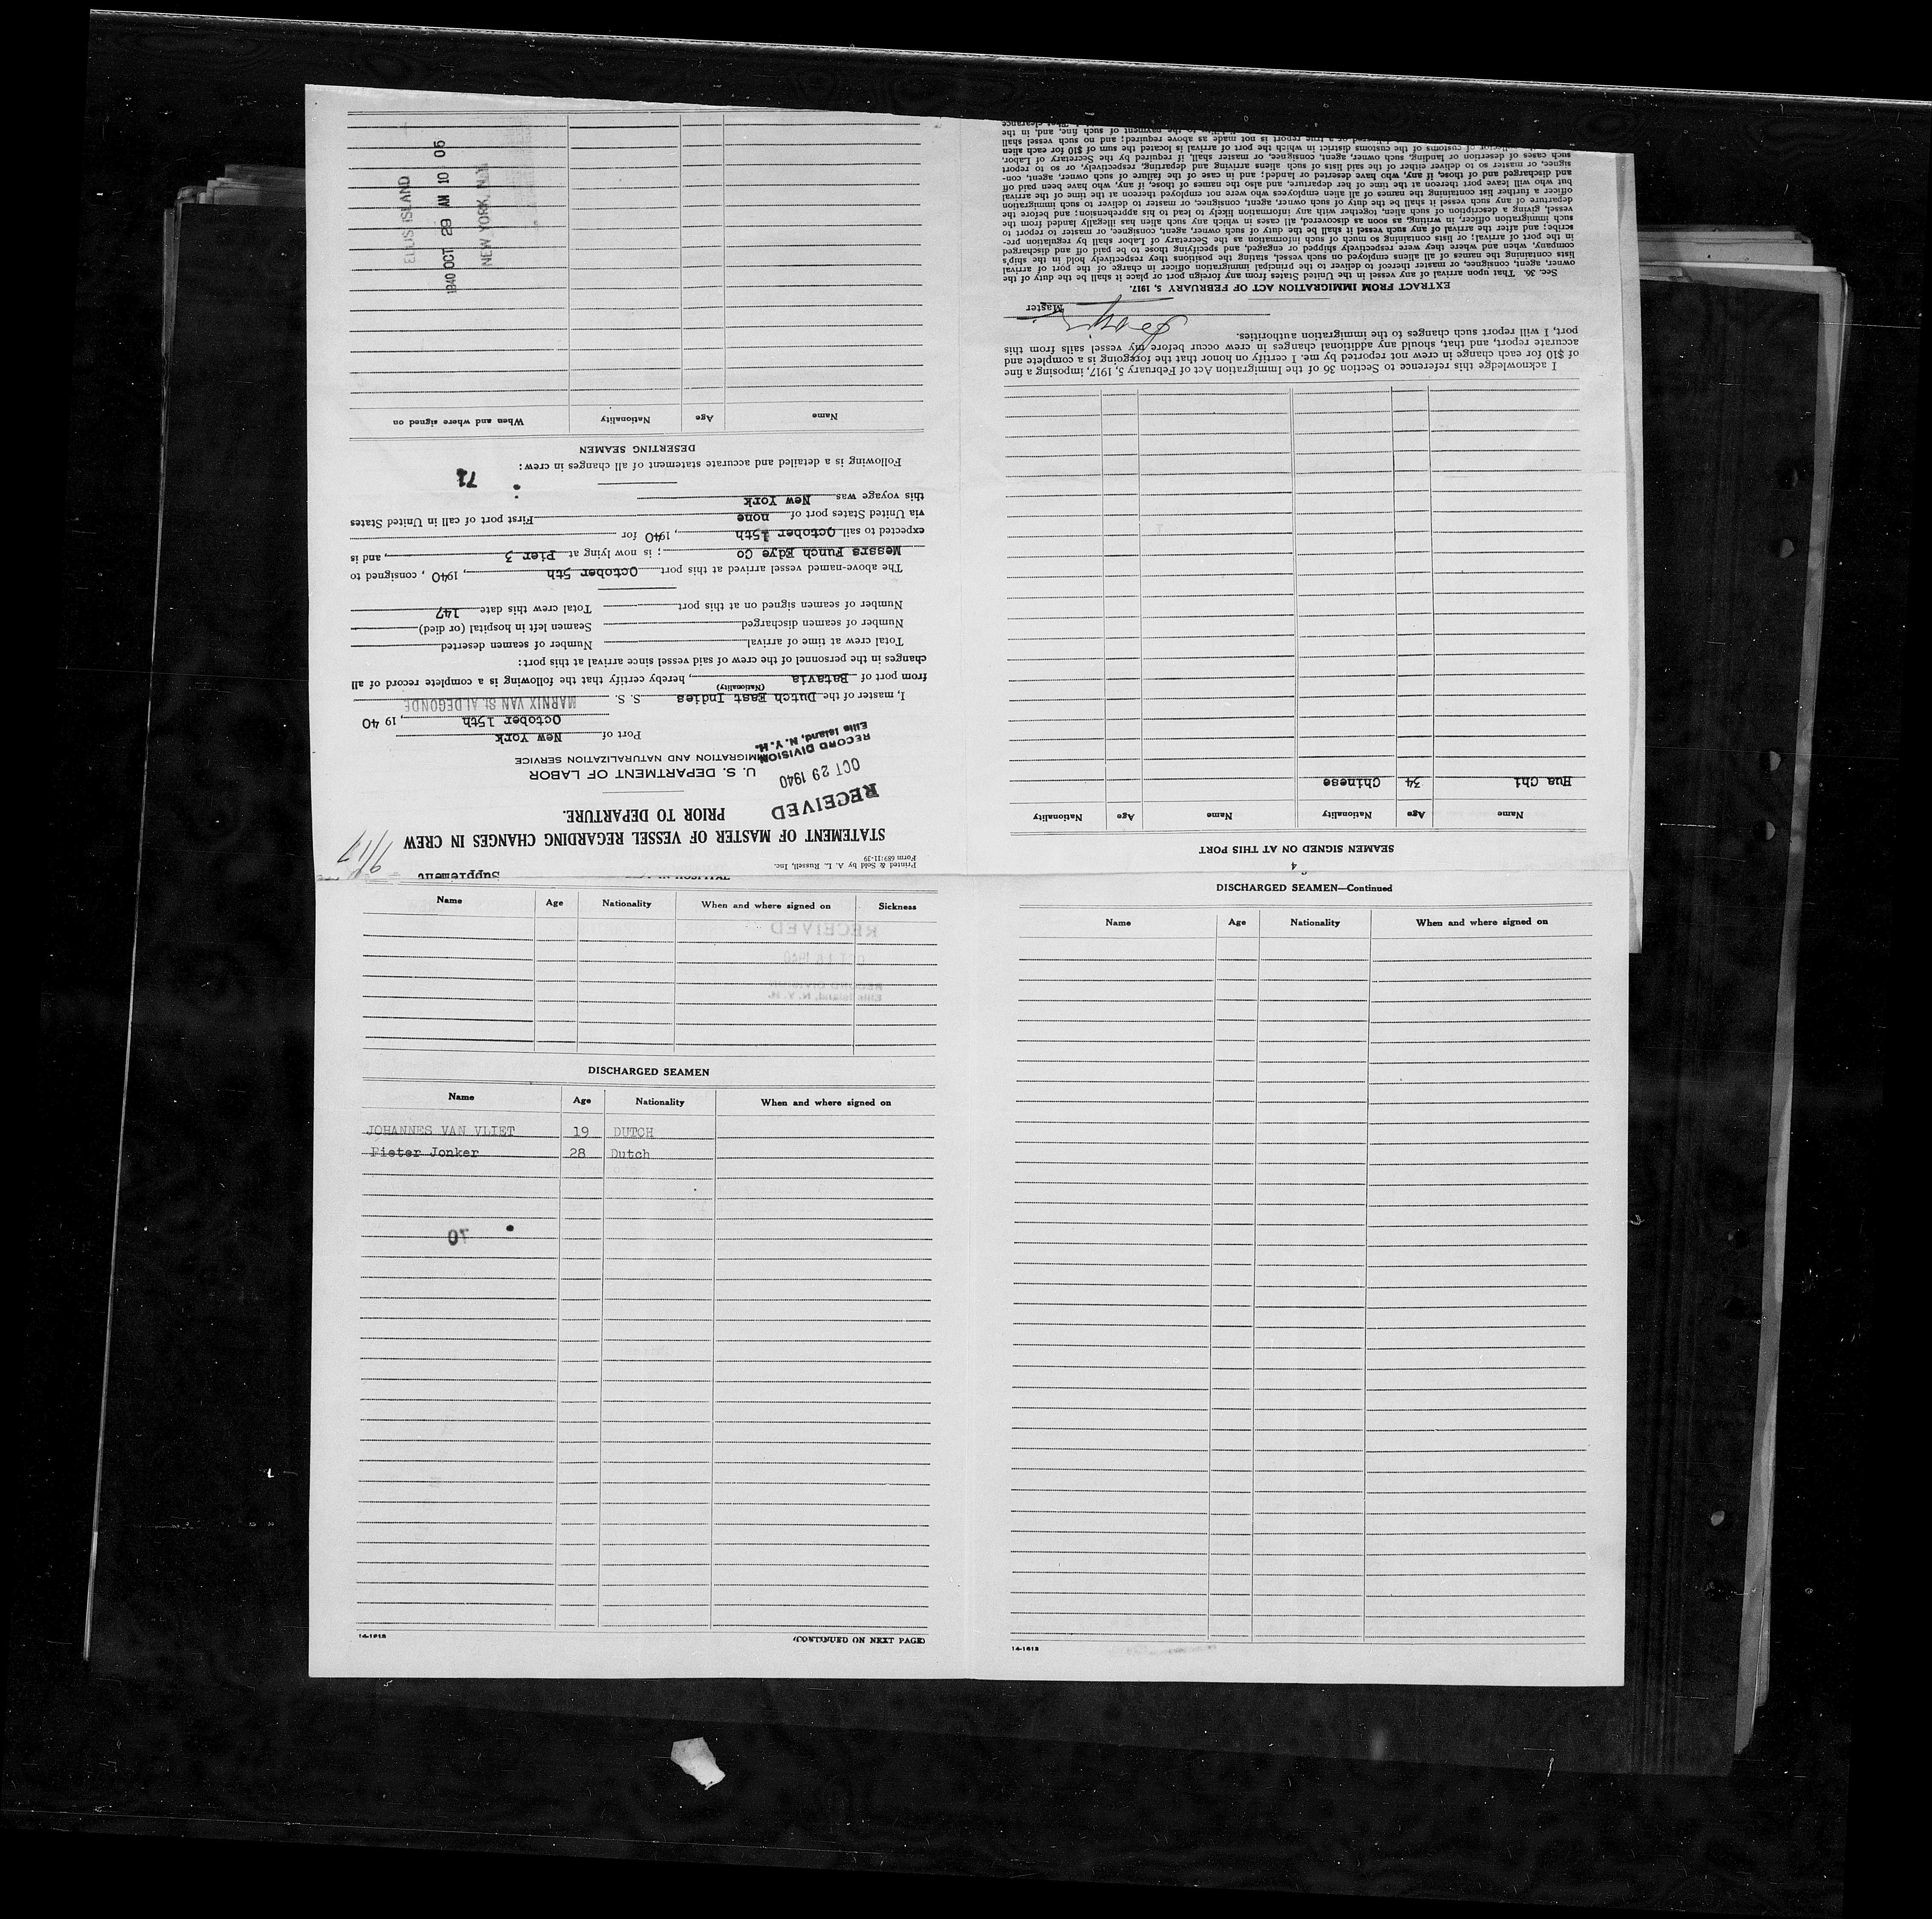 Supplement
Printed & Sold by A. L. Russell, Inc.
Form 689:11-39
STATEMENT OF MASTER OF VESSEL REGARDING CHANGES IN CREW
PRIOR TO DEPARTURE.
RECEIVED
OCT 29 1940
RECORD DIVISION
Ellis Island, N. Y. H.
U. S. DEPARTMENT OF LABOR
IMMIGRATION AND NATURALIZATION SERVICE
Port of New York
October 15th, 1940
I, master of the Dutch East Indies S. S. MARNIX VAN St ALDEGONDE
(Nationality)
from port of Batavia, hereby certify that the following is a complete record of all
changes in the personnel of the crew of said vessel since arrival at this port:
Total crew at time of arrival Number of seamen deserted
Number of seamen discharged Seamen left in hospital (or died)
Number of seamen signed on at this port Total crew this date 147
The above-named vessel arrived at this port October 5th, 1940, consigned to
Messrs Funch Edye Co; is now lying at Pier 3, and is
expected to sail October 15th, 1940 for
via United States port of none First port of call in United States
this voyage was New York
71
Following is a detailed and accurate statement of all changes in crew:
DESERTING SEAMEN
Name Age Nationality When and where signed on
ELLIS ISLAND
1940 OCT 29 AM 10 05
NEW YORK, N.Y.
4
SEAMEN SIGNED ON AT THIS PORT
Name Age Nationality Name Age Nationality
Hua Chi 34 Chinese
I acknowledge this reference to Section 36 of the Immigration Act of February 5, 1917, imposing a fine
of $10 for each change in crew not reported by me. I certify on honor that the foregoing is a complete and
accurate report, and that, should any additional changes in crew occur before my vessel sails from this
port, I will report such changes to the immigration authorities.
Master
EXTRACT FROM IMMIGRATION ACT OF FEBRUARY 5, 1917.
Sec. 36. That upon arrival of any vessel in the United States from any foreign port or place it shall be the duty of the
owner, agent, consignee, or master thereof to deliver to the principal immigration officer in charge of the port of arrival
lists containing the names of all aliens employed on such vessel, stating the positions they respectively hold in the ship's
company, when and where they were respectively shipped or engaged, and specifying those to be paid off and discharged
in the port of arrival; or lists containing so much of such information as the Secretary of Labor shall by regulation pre-
scribe; and after the arrival of any such vessel it shall be the duty of such owner, agent, consignee, or master to report to
such immigration officer, in writing, as soon as discovered, all cases in which any such alien has illegally landed from the
vessel, giving a description of such alien, together with any information likely to lead to his apprehension; and before the
departure of any such vessel it shall be the duty of such owner, agent, consignee, or master to deliver to such immigration
officer a further list containing the names of all alien employees who were not employed thereon at the time of the arrival
but who will leave port thereon at the time of her departure, and also the names of those, if any, who have been paid off
and discharged and of those, if any, who have deserted or landed; and in case of the failure of such owner, agent, con-
signee, or master so to deliver either of the said lists of such aliens arriving and departing, respectively, or so to report
such cases of desertion or landing, such owner, agent, consignee, or master shall, if required by the Secretary of Labor,
collector of customs of the customs district in which the port of arrival is located the sum of $10 for each alien
a true report is not made as above required; and no such vessel shall
the payment of such fine, and, in the
Name Age Nationality When and where signed on Sickness
DISCHARGED SEAMEN
Name Age Nationality When and where signed on
JOHANNES VAN VLIET 19 DUTCH
Pieter Jonker 28 Dutch
70
14-1618
(CONTINUED ON NEXT PAGE)
DISCHARGED SEAMEN—Continued
Name Age Nationality When and where signed on
14-1618